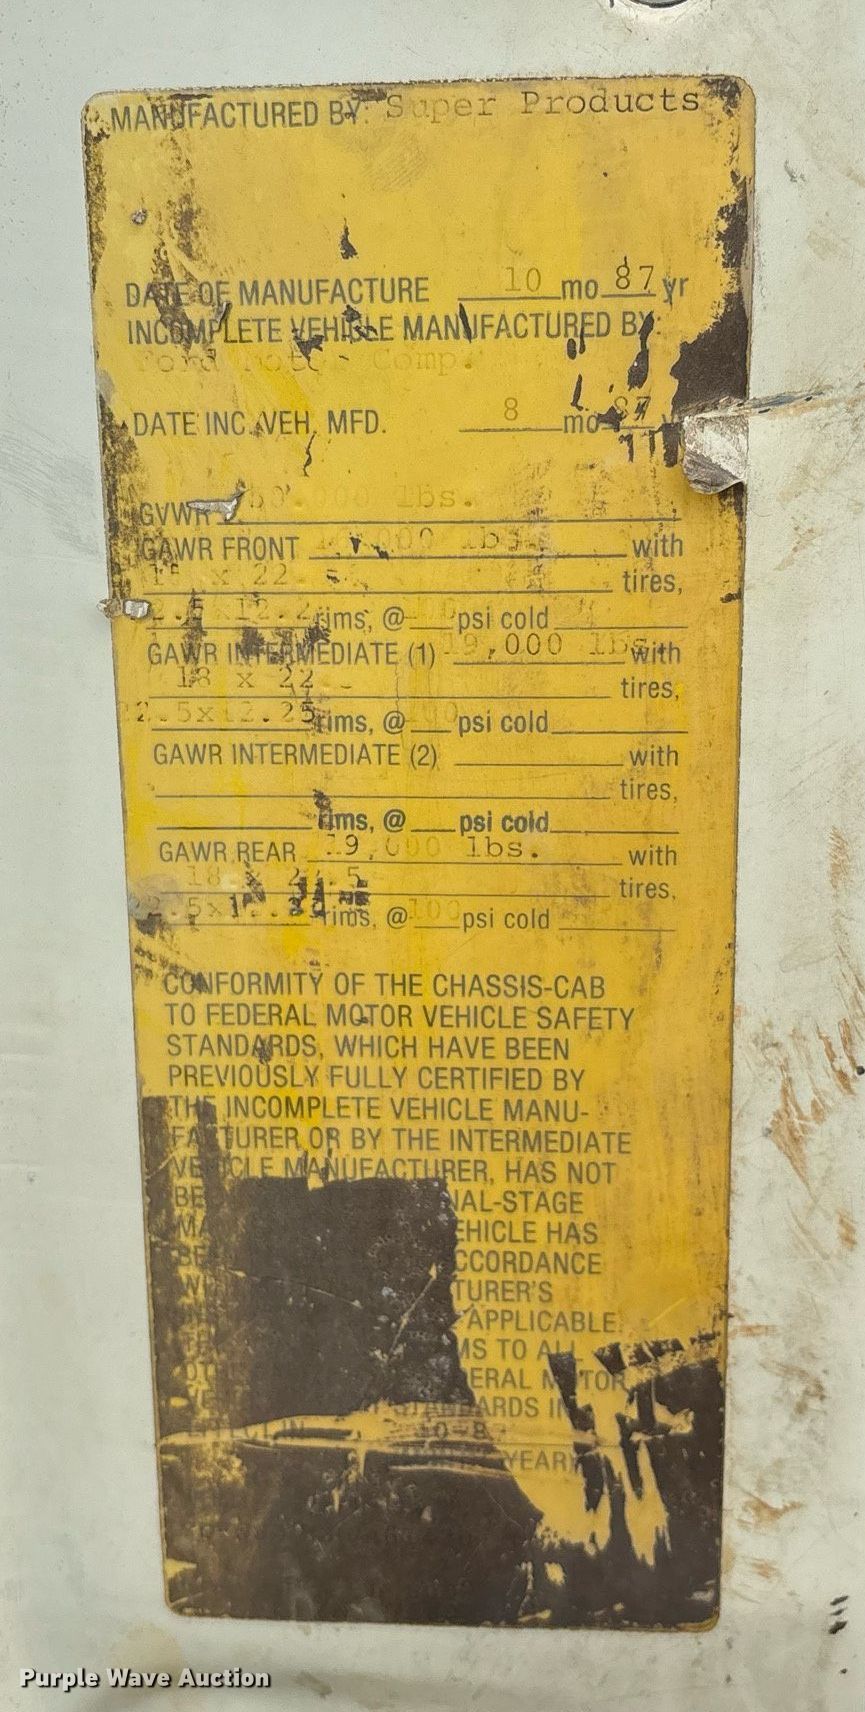 MANUFACTURED BY: Super Products
DATE OF MANUFACTURE 10 mo 87 yr
INCOMPLETE VEHICLE MANUFACTURED BY:
Ford Motor Comp.
DATE INC. VEH. MFD. 8 mo 87
GVWR 000 lbs.
GAWR FRONT 000 lbs. with
x 22. tires,
rims, @ psi cold
GAWR INTERMEDIATE (1) 19,000 lbs. with
18 x 22 tires,
22.5x12.25 rims, @ 100 psi cold
GAWR INTERMEDIATE (2) with
tires,
rims, @ psi cold
GAWR REAR 19,000 lbs. with
18 x 22.5 tires,
rims, @ 100 psi cold
CONFORMITY OF THE CHASSIS-CAB
TO FEDERAL MOTOR VEHICLE SAFETY
STANDARDS, WHICH HAVE BEEN
PREVIOUSLY FULLY CERTIFIED BY
THE INCOMPLETE VEHICLE MANU-
FACTURER OR BY THE INTERMEDIATE
VEHICLE MANUFACTURER, HAS NOT
BE NAL-STAGE
MA EHICLE HAS
BE CCORDANCE
W TURER'S
APPLICABLE.
MS TO ALL
OT ERAL MOTOR
STANDARDS IN
10-8
YEAR)
Purple Wave Auction